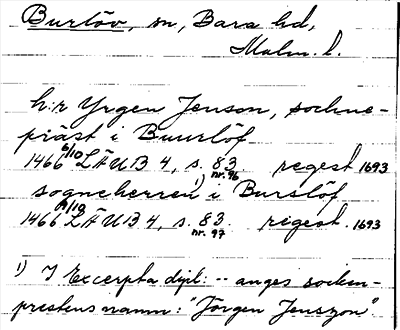 Burlöv, sn, Bara hd,
Malm. l.
h:r Yrgen Jenson, sochne-
präst i Buurlöf
1466 6/10 LÄUB 4, s. 83 regest 1693
nr. 96
sogneherren 1) i Burslöf
1466 9/10 LÄUB 4, s. 83 regest 1693
nr. 97
1) I Excerpta dipl: -- anges socken-
prestens namn: "Jörgen Jenszon"